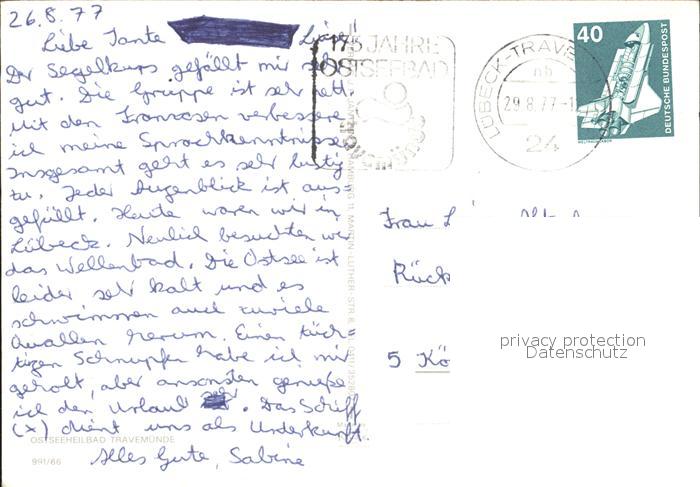 26.8.77
Liebe Tante
Der Segelkurs gefällt mir sehr
gut. Die Gruppe ist sehr nett.
Mit den Franzosen verbessere
ich meine Sprachkenntnisse
Insgesamt geht es sehr lustig
zu. Jeder Augenblick ist aus=
gefüllt. Heute waren wir in
Lübeck. Neulich besuchten wir
das Wellenbad. Die Ostsee ist
leider sehr kalt und es
schwimmen auch zuviele
Quallen herum. Einen tüch=
tigen Schnupfen habe ich mir
geholt, aber ansonsten genieße
ich den Urlaub. Das Schiff
(x) dient uns als Unterkunft.
Alles Gute, Sabine
OSTSEEHEILBAD TRAVEMÜNDE
991/66
175 JAHRE
OSTSEEBAD
LÜBECK-TRAVE
nb
29.8.77-1
24
40
DEUTSCHE BUNDESPOST
WELTRAUMLABOR
HAMBURG 11, MARTIN-LUTHER-STR. 6
Frau
Rück
5 Kö
privacy protection
Datenschutz